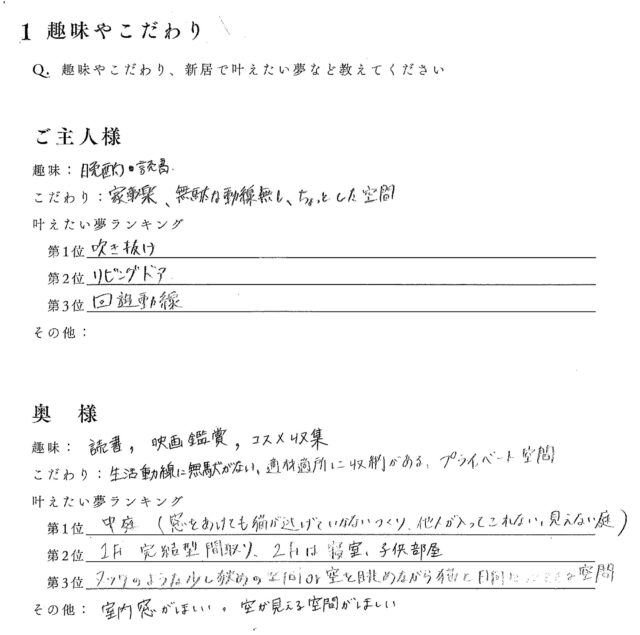 1 趣味やこだわり
Q. 趣味やこだわり、新居で叶えたい夢など教えてください
ご主人様
趣味：晩酌・読書
こだわり：家事楽、無駄な動線無し、ちょっとした空間
叶えたい夢ランキング
第1位 吹き抜け
第2位 リビングドア
第3位 回遊動線
その他：
奥 様
趣味：読書，映画鑑賞，コスメ収集
こだわり：生活動線に無駄がない，適材適所に収納がある，プライベート空間
叶えたい夢ランキング
第1位 中庭（窓をあけても猫が逃げていかないつくり、他人が入ってこれない，見えない庭）
第2位 1F 完結型間取り、2Fは寝室、子供部屋
第3位 ヌックのような少し狭めの空間or空を眺めながら猫と 空間
その他：室内窓がほしい。空が見える空間がほしい